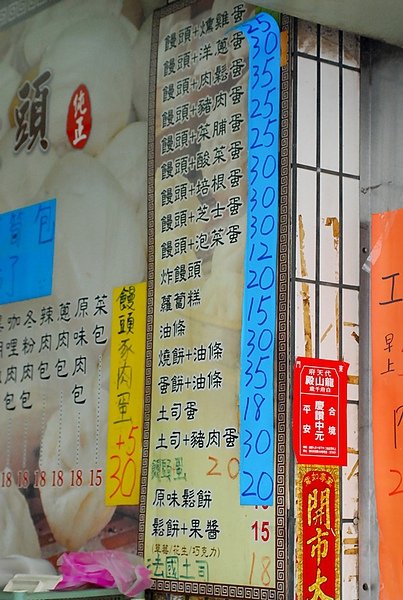 頭
純正
包
了
饅頭+燻雞蛋
饅頭+洋蔥蛋
饅頭+肉鬆蛋
饅頭+豬肉蛋
饅頭+菜脯蛋
饅頭+酸菜蛋
饅頭+培根蛋
饅頭+芝士蛋
饅頭+泡菜蛋
炸饅頭
蘿蔔糕
油條
燒餅+油條
蛋餅+油條
土司蛋
土司+豬肉蛋
20
原味鬆餅
鬆餅+果醬 15
(草莓/花生/巧克力)
法國土司 18
25
30
35
25
25
30
30
30
12
20
15
30
35
18
30
20
饅頭豕肉蛋
+5
30
菜包
原味
蔥肉包
辣肉包
冬粉包
咖哩肉包
18 18 18 18 18 15
代天府
龍山殿
慶讚中元
合境
平安
開市大
工
早上